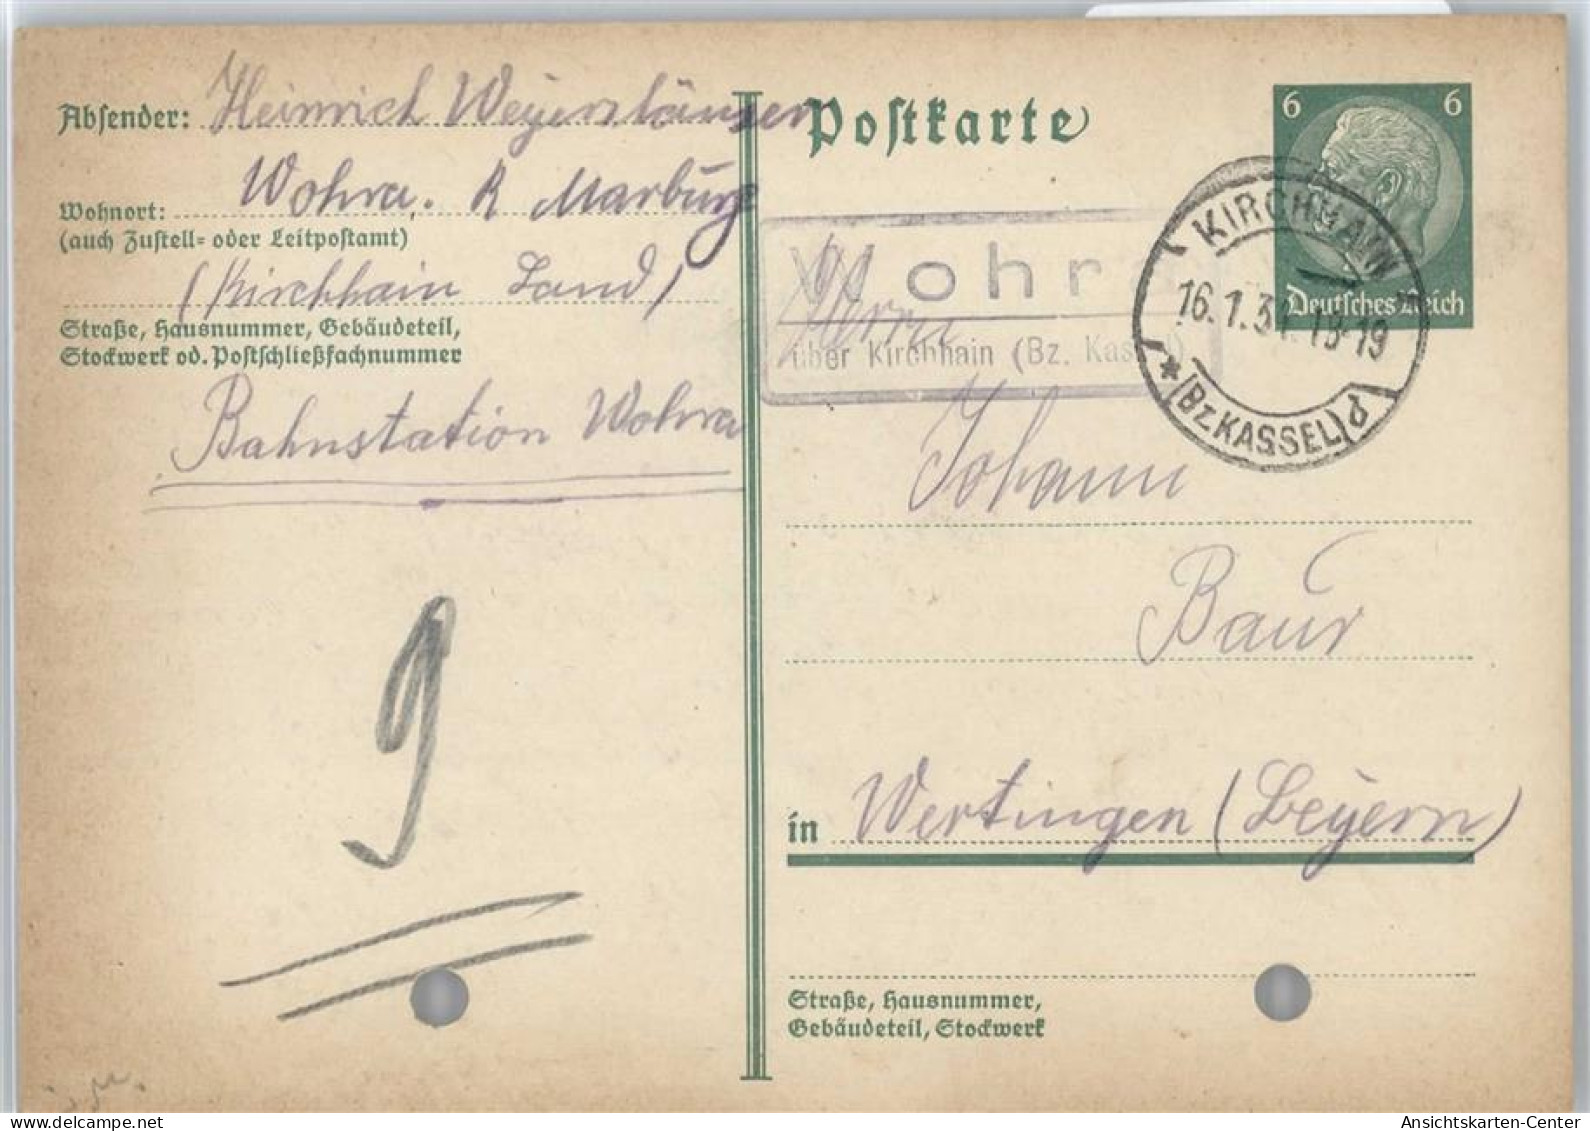 Absender: Heinrich Weyershäuser
Wohnort: Wohra. R Marburg
(auch Zustell- oder Leitpostamt)
(Kirchhain Land)
Straße, Hausnummer, Gebäudeteil,
Stockwerk od. Postschließfachnummer
Bahnstation Wohra
9
Postkarte
6 6
Deutsches Reich
KIRCHHAIN
16.1.34. 18-19
* (Bz. KASSEL) d
Wohra
über Kirchhain (Bz. Kassel)
Herrn
Johann
Baur
in Wertingen (Beyern)
Straße, Hausnummer,
Gebäudeteil, Stockwerk
Ansichtskarten-Center